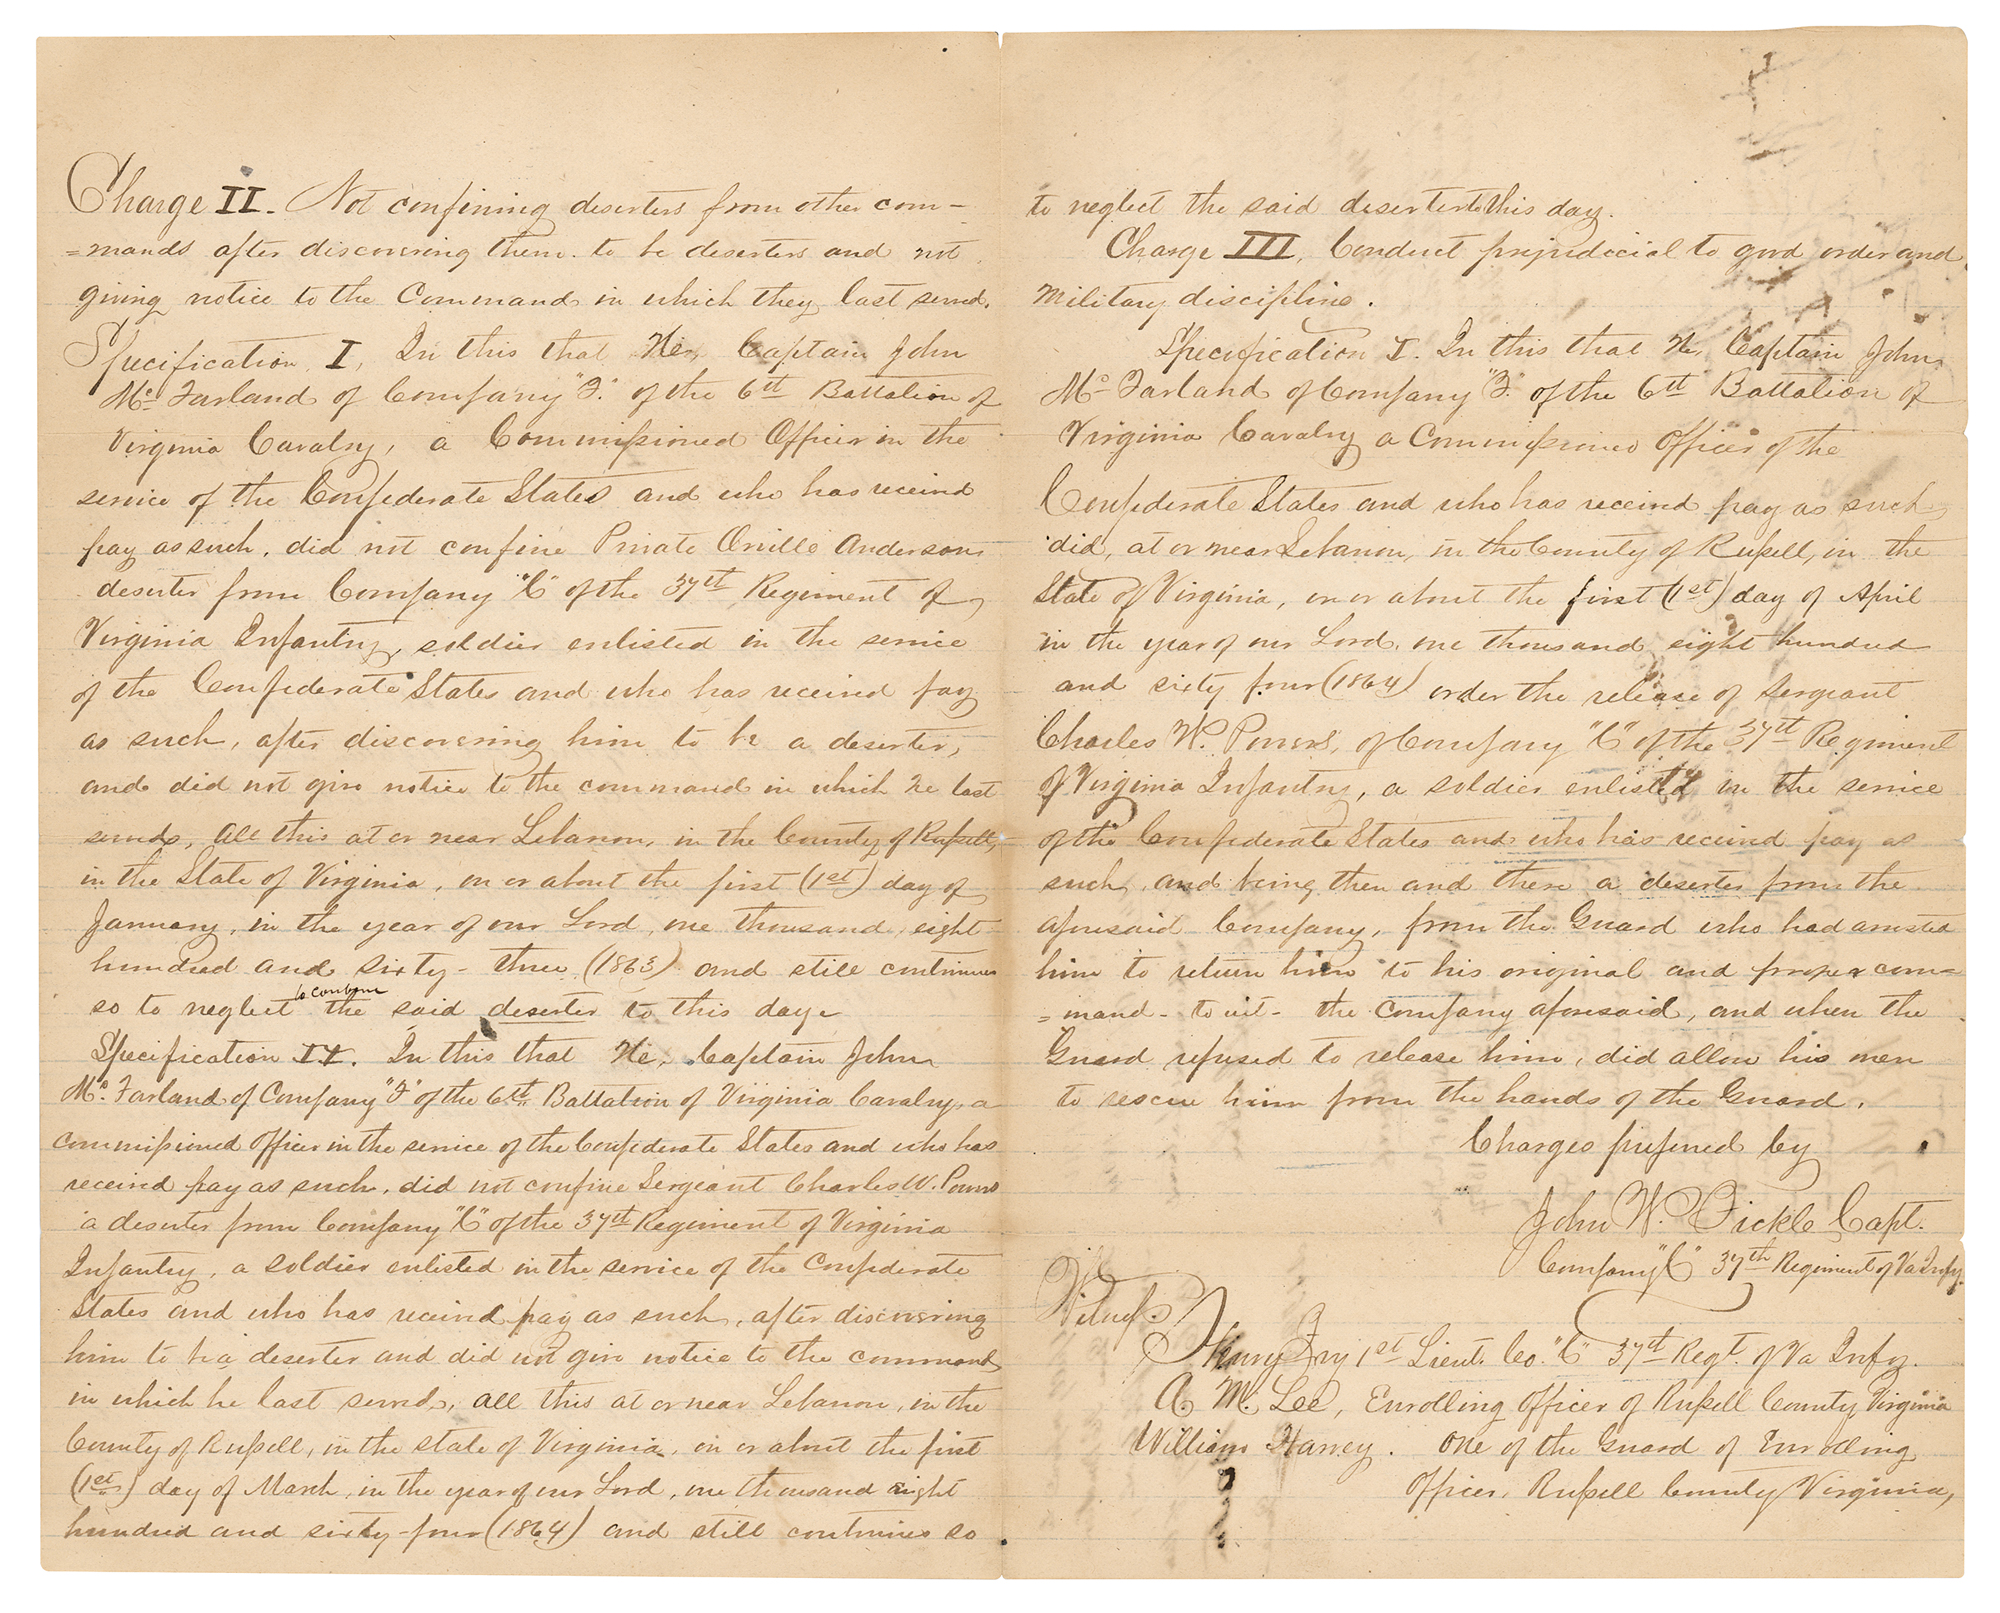 Charge II. Not confining deserters from other com-
=mands after discovering them to be deserters and not
giving notice to the Command in which they last served.
Specification I, In this that He, Captain John
McFarland of Company "F." of the 6th Battalion of
Virginia Cavalry, a Commissioned Officer in the
service of the Confederate States and who has received
pay as such, did not confine Private Orville Anderson
deserter from Company "C" of the 37th Regiment of
Virginia Infantry, soldier enlisted in the service
of the Confederate States and who has received pay
as such, after discovering him to be a deserter,
and did not give notice to the command in which he last
served, all this at or near Lebanon, in the County of Russell,
in the State of Virginia, on or about the first (1st) day of
January, in the year of our Lord, one thousand, eight
hundred and sixty-three (1863) and still continues
so to neglect to confine the said deserter to this day.
Specification II. In this that He, Captain John
McFarland of Company "F" of the 6th Battalion of Virginia Cavalry, a
commissioned officer in the service of the Confederate States and who has
received pay as such, did not confine Sergeant Charles W. Powers
a deserter from Company "C" of the 37th Regiment of Virginia
Infantry, a soldier enlisted in the service of the Confederate
States and who has received pay as such, after discovering
him to be a deserter and did not give notice to the command
in which he last served, all this at or near Lebanon, in the
County of Russell, in the state of Virginia, on or about the first
(1st) day of March, in the year of our Lord, one thousand eight
hundred and sixty-four (1864) and still continues so
to neglect the said deserter to this day.
Charge III, Conduct prejudicial to good order and
military discipline.
Specification I. In this that He, Captain John
McFarland of Company "F." of the 6th Battalion of
Virginia Cavalry a Commissioned Officer of the
Confederate States and who has received pay as such
did, at or near Lebanon, in the County of Russell, in the
State of Virginia, on or about the first (1st) day of April
in the year of our Lord, one thousand eight hundred
and sixty four (1864) order the release of Sergeant
Charles W. Powers, of Company "C" of the 37th Regiment
of Virginia Infantry, a soldier enlisted in the service
of the Confederate States and who has received pay as
such, and being then and there a deserter from the
aforesaid Company, from the Guard who had arrested
him to return him to his original and proper com=
=mand - to wit - the Company aforesaid, and when the
Guard refused to release him, did allow his men
to rescue him from the hands of the Guard.
Charges preferred by
John W. Fickle Capt.
Company "C" 37th Regiment of Va Infy.
Witness.
Henry Fry 1st Lieut. Co. "C" 37th Regt. of Va Infy.
A. M. Lee, Enrolling Officer of Russell County Virginia
William Harvey. One of the Guard of Enrolling
Officer, Russell County Virginia,